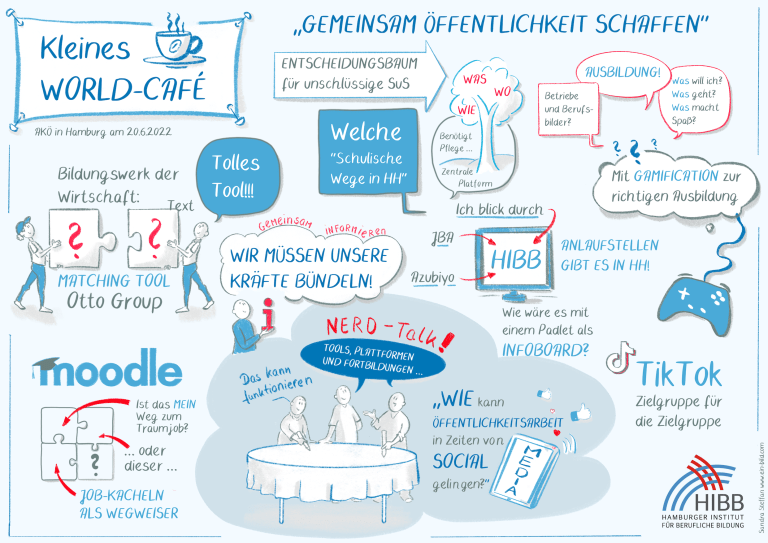 Kleines
WORLD-CAFÉ
AKÖ in Hamburg am 20.6.2022
„GEMEINSAM ÖFFENTLICHKEIT SCHAFFEN"
ENTSCHEIDUNGSBAUM
für unschlüssige SuS
WAS
WO
WIE
Benötigt
Pflege ...
Zentrale
Plattform
AUSBILDUNG!
Betriebe
und Berufs-
bilder?
Was will ich?
Was geht?
Was macht
Spaß?
Welche
"Schulische
Wege in HH"
Tolles
Tool!!!
Bildungswerk der
Wirtschaft:
Text
?
?
MATCHING TOOL
Otto Group
GEMEINSAM INFORMIEREN
WIR MÜSSEN UNSERE
KRÄFTE BÜNDELN!
i
Ich blick durch
JBA
HIBB
Azubiyo
ANLAUFSTELLEN
GIBT ES IN HH!
Wie wäre es mit
einem Padlet als
INFOBOARD?
? ? ?
Mit GAMIFICATION zur
richtigen Ausbildung
moodle
Ist das MEIN
Weg zum
Traumjob?
... oder
dieser ...
?
JOB-KACHELN
ALS WEGWEISER
NERD-Talk!
TOOLS, PLATTFORMEN
UND FORTBILDUNGEN ...
Das kann
funktionieren
„WIE kann
ÖFFENTLICHKEITSARBEIT
in Zeiten von
SOCIAL
gelingen?"
MEDIA
TikTok
Zielgruppe für
die Zielgruppe
HIBB
HAMBURGER INSTITUT
FÜR BERUFLICHE BILDUNG